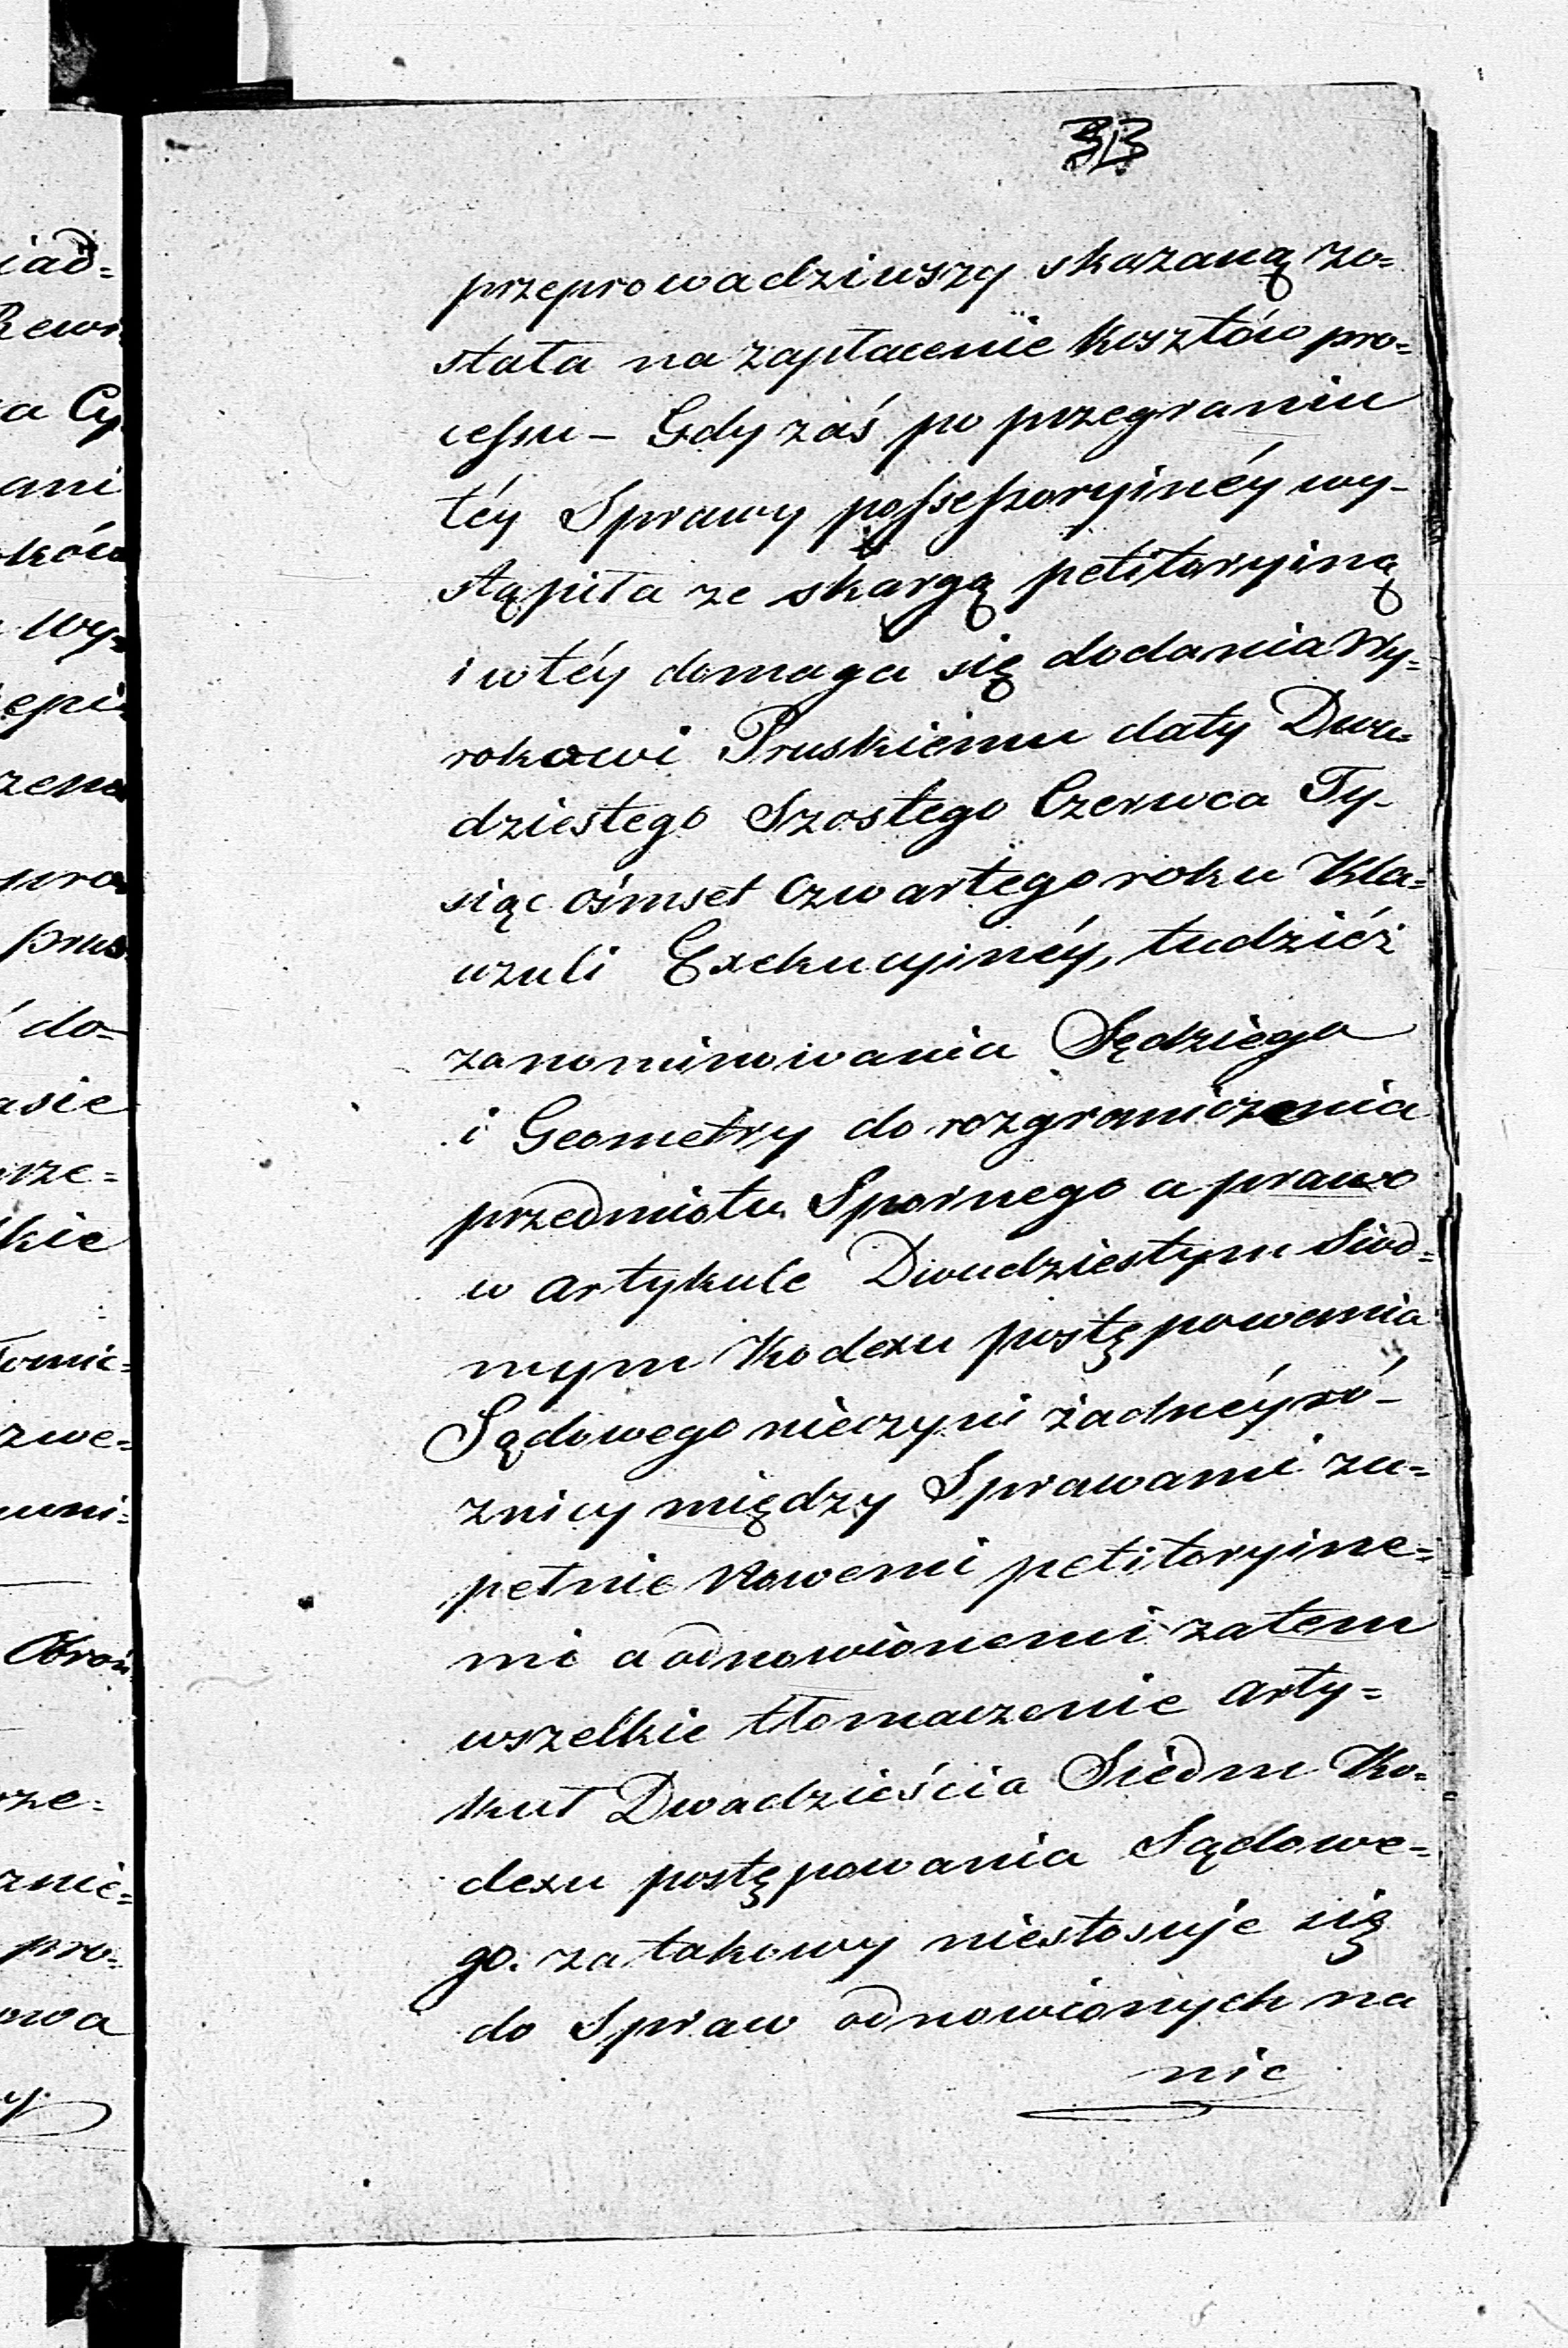 313
przeprowadziwszy skazaną zo=
stała na zapłacenie kosztów pro=
cessu – Gdy zaś po przegraniu
téy Sprawy possessoryinéy wy-
stąpiła ze skargą petitoryiną
i w téy domaga się dodania Wy=
rokowi Pruskiemu daty Dwu=
dziestego Szostego Czerwca Ty-
siąc ośmset czwartego roku Kla=
uzuli Exekucyinéy, tudzież
zanominowania Sędziego
i Geometry do rozgraniczenia
przedmiotu Spornego a prawo
w artykule Dwudziestym Siód=
mym Kodexu postępowania
Sądowego nieczyni żadnéy ró-
żnicy między Sprawami zu=
pełnie nowemi petitoryine=
mi a odnowionemi zatem
wszelkie tłomaczenie arty=
kuł Dwadzieścia Siedm Ko=
dexu postępowania Sądowe=
go. za takowy niestosuje się
do Spraw odnowionych na
nic
iad=
Rewi
a Cy
ani
ków
Wy=
epi
zena
pra
prus
do=
asie
rze=
kie
omie=
zwe=
wni=
Obroń
rze=
znie=
pro=
owa